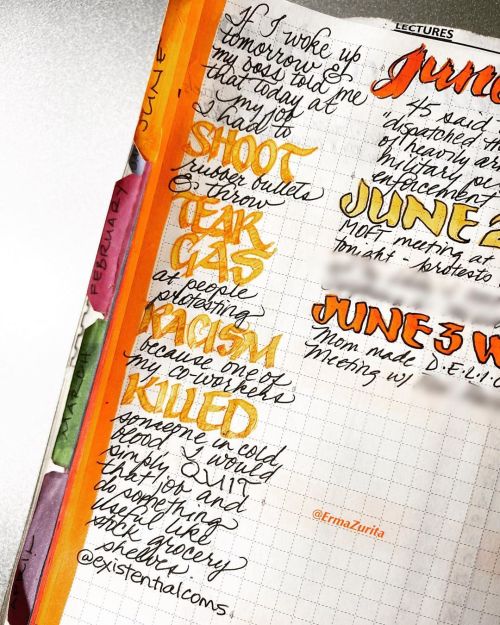 LECTURES
JUNE
FEBRUARY
MARCH
If I woke up
tomorrow &
my boss told me
that today at
my job
I had to
SHOOT
rubber bullets
& throw
TEAR
GAS
at people
protesting
RACISM
because one of
my co-workers
KILLED
someone in cold
blood I would
simply QUIT
that job and
do something
useful like
stock grocery
shelves.
@existentialcoms
June
45 said
"dispatched th
of heavily ar
military pe
enforcement
JUNE 2
MOFT meeting at
tonight - protests
JUNE 3 W
Mom made D.E.L.I.C
Meeting w/
@ErmaZurita